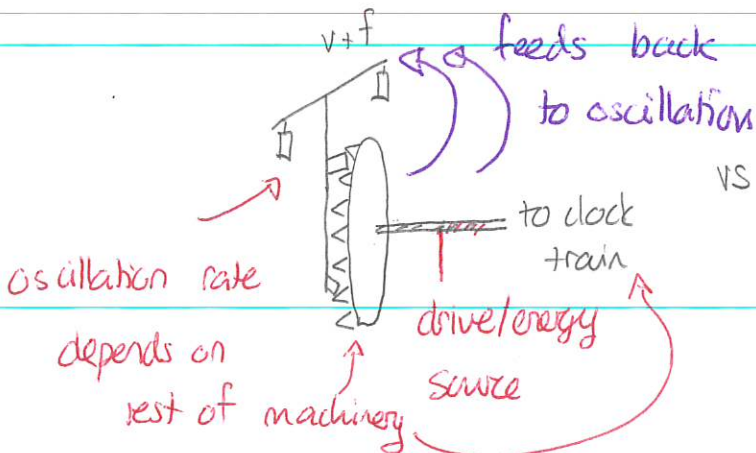 v+f
feeds back
to oscillation
vs
to clock
train
oscillation rate
depends on
rest of machinery
drive/energy
source